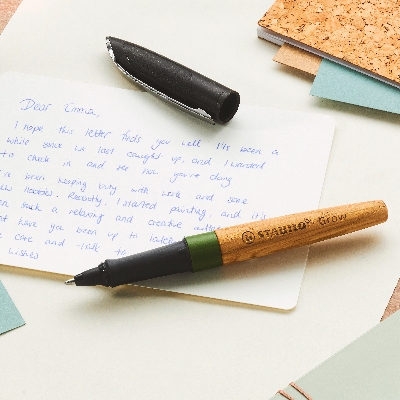 Dear Emma,
I hope this letter finds you well. It's been a
while since we last caught up, and I wanted
to check in and see how you've doing
been keeping busy with work and some
new hobbies. Recently, I started painting, and it's
been such a relaxing and creative
have you been up to lately
care and talk to
wishes
STABILO Grow